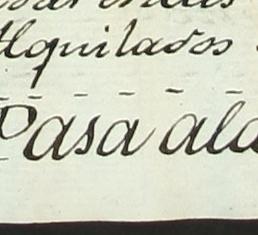 Alquilados
Pasa ala